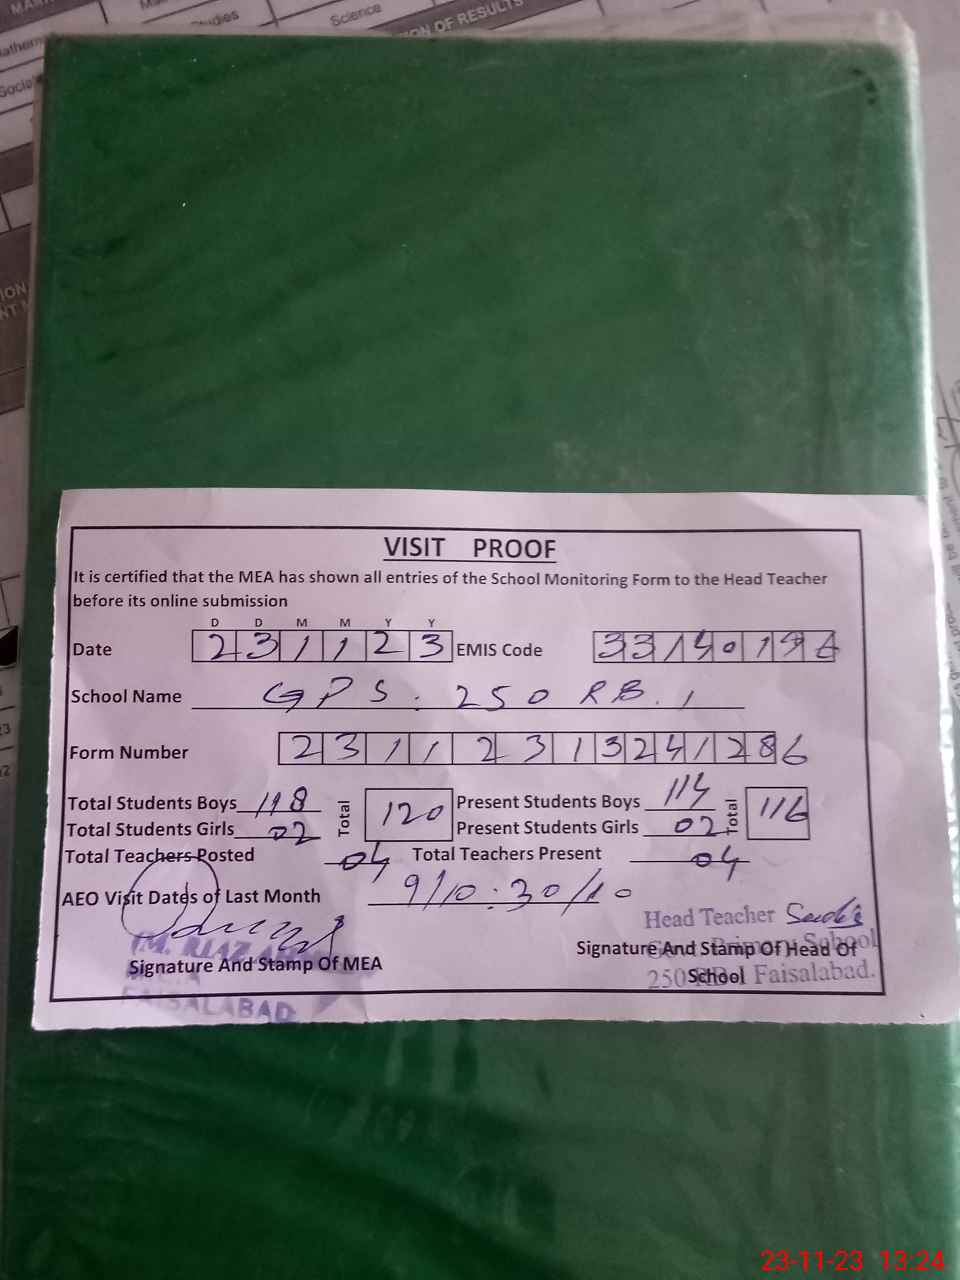 Science
ON OF RESULTS
VISIT PROOF
It is certified that the MEA has shown all entries of the School Monitoring Form to the Head Teacher
before its online submission
D D M M Y Y
Date 23 11 23 EMIS Code
School Name GPS. 250 RB.
Form Number
Total Students Boys 118 Total 120 Present Students Boys 114 Total 116
Total Students Girls 02 Present Students Girls 02
Total Teachers Posted 04 Total Teachers Present 04
AEO Visit Dates of Last Month 9/10 : 30/10
Head Teacher
Signature And Stamp Of MEA Signature And Stamp Of Head Of
School
Primary School
250 Faisalabad.
FAISALABAD
23-11-23 13:24